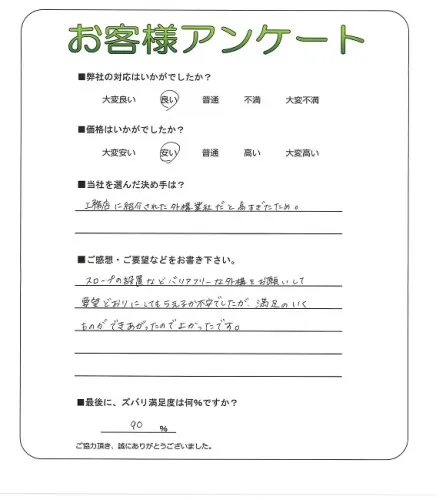 お客様アンケート
■弊社の対応はいかがでしたか？
大変良い 良い 普通 不満 大変不満
■価格はいかがでしたか？
大変安い 安い 普通 高い 大変高い
■当社を選んだ決め手は？
工務店に紹介された外構業社だと高すぎたため。
■ご感想・ご要望などをお書き下さい。
スロープの設置などバリアフリーな外構をお願いして
要望どおりにしてもらえるか不安でしたが、満足のいく
ものができあがったのでよかったです。
■最後に、ズバリ満足度は何%ですか？
90 %
ご協力頂き、誠にありがとうございました。